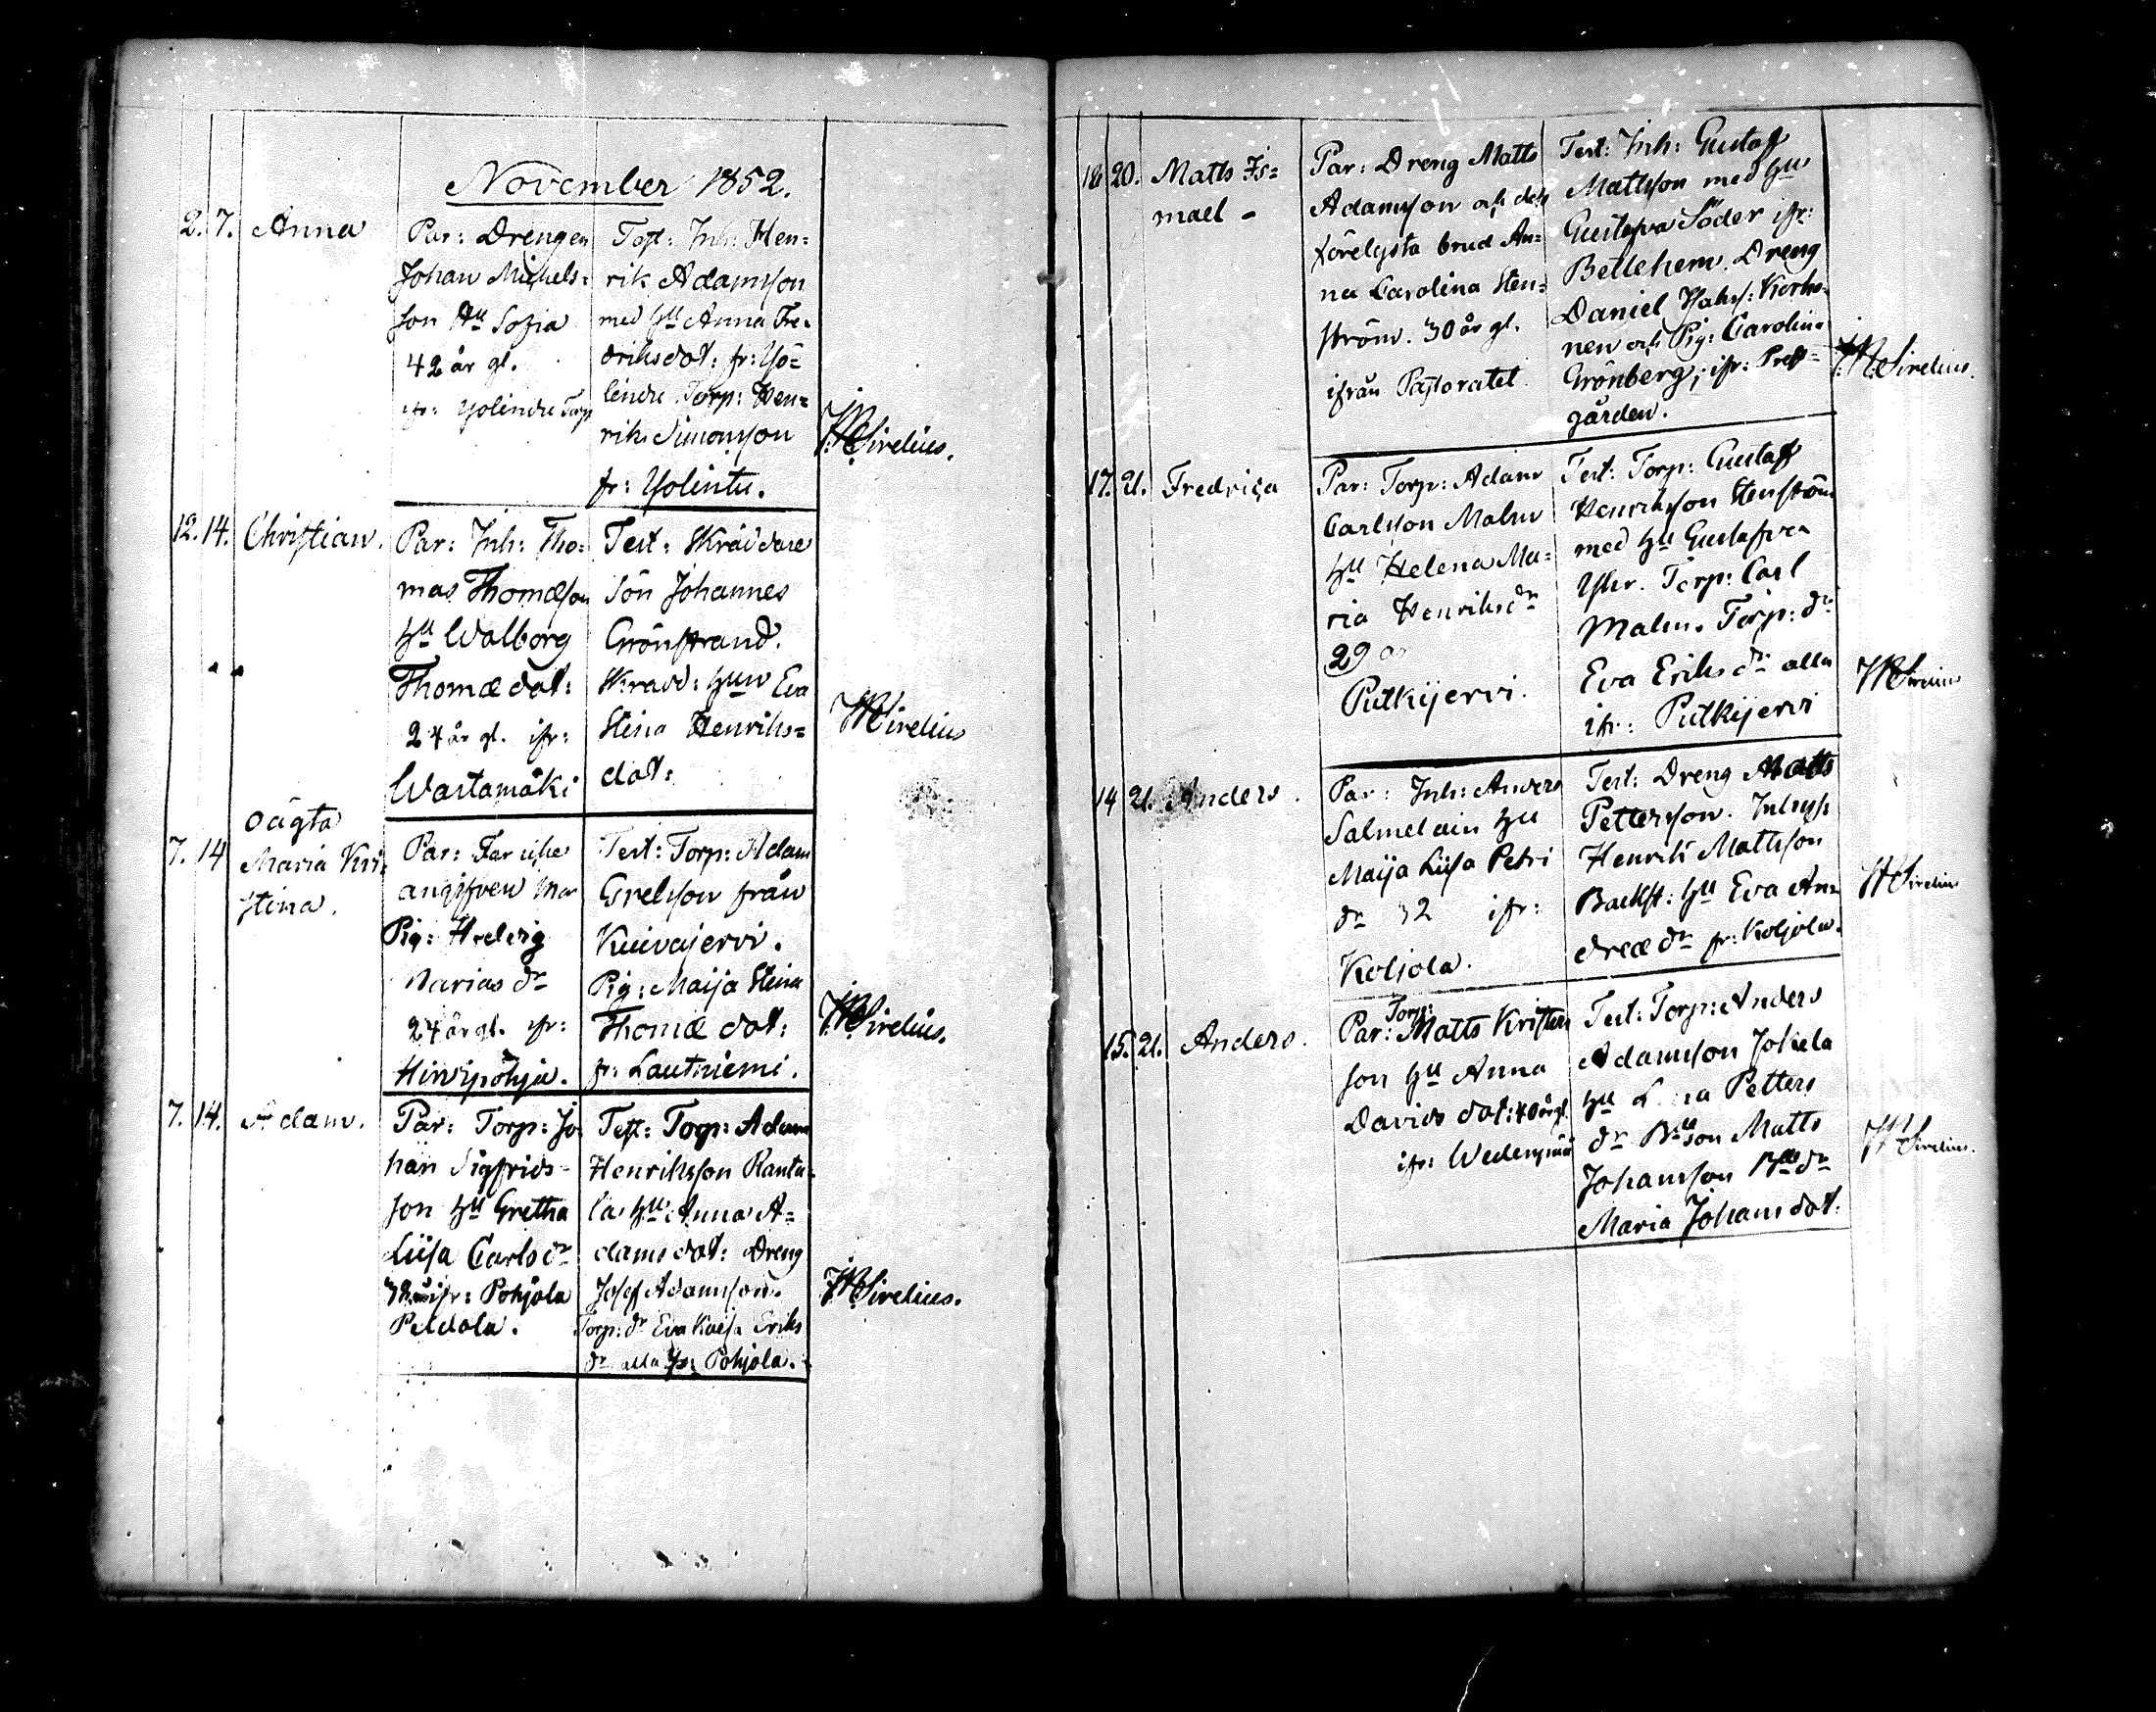 November 1852.
2. 7. Anna
Par: Drengen
Johan Michels-
son Hu Sofia
42 år gl.
ifr: Yolindu Torp
Test: Inh: Hen=
rik Adamsson
med hu Anna Fre-
driksdot: fr: Yö=
lendu Torp: Hen=
rik Simonsson
fr: Yolintu.
Sirelius.
12. 14. Christian.
Par: Inh: Tho:
mas Thomæson
hu Walborg
Thomædot:
24 år gl. ifr:
Wartamäki
Test: Skräddare
sön Johannes
Grönstrand.
Skrädd: hun Eva
Stina Henriks=
dot:
Sirelius
7. 14
oägta
Maria Kri-
stina.
Par: Far icke
angifven Mor
Pig: Hedvig
Mariasdr
24 år gl. ifr:
Hirvipohja.
Test: Torp: Adam
Grelsson från
Kuivajervi.
Pig: Maija Stina
Thomædot:
fr: Lautniemi.
Sirelius.
7. 14. Adam.
Par: Torp: Jo
han Sigfrids-
son hu Gretha
Liisa Carlsdr
ifr: Pohjola
Peldola.
Test: Torp: Adam
Henriksson Ranta-
la hu Anna A=
damsdot: Dreng
Josef Adamsson.
Torp: dr Eva Kaisa Eriks
dr alla ifr: Pohjola.
Sirelius.
18 20. Matts Is=
mael -
Par: Dreng Matts
Adamsson och dess
förelysta brud An=
na Carolina Sten=
ström. 30 år gl.
ifrån Pastoratet.
Test: Inh: Gustaf
Mattsson med hu
Gustafva Söder ifr:
Betlehem. Dreng
Daniel Korho-
nen och Pig: Carolina
Grönberg, ifr: Prest=
gården.
Sirelius.
17. 21. Fredrica
Par: Torp: Adam
Carlsson Malm
hu Helena Ma=
ria Henriksdr
29
Putkijervi.
Test: Torp: Gustaf
Henriksson Stenström
med hu Gustafva
Torp: Carl
Malm. Torp: dr
Eva Eriksdr alla
ifr: Putkijervi
Sirelius
14 21. Anders.
Par: Inh: Anders
Salmelain hu
Maija Liisa Petri
dr 32 ifr:
Koljola.
Test: Dreng Matts
Pettersson. Inhys
Henrik Mattsson
Backst: hu Eva An=
dreædr fr: Koljola.
Sirelius
15. 21. Anders.
Torp:
Par: Matts Krister
son hu Anna
Davids dot: 40 år gl.
ifr:
Test: Torp: Anders
Adamsson Jokela
hu Petters
dr son Matts
Johansson dr
Maria Johansdot.
Sirelius.